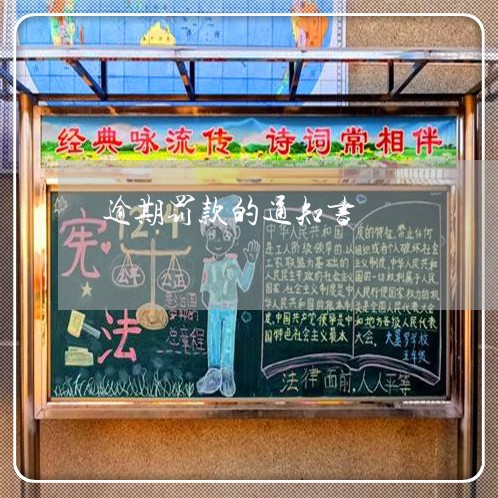 经典咏流传 诗词常相伴
逾期罚款的通知书
12.4
宪法
公平 公正
总章程
中华人民共和国
是工人阶级领导的,以
工农联盟为基础的
人民民主专政的社会主义
国家,社会主义制度是中
华人民共和国的根本制
度,中国共产党领导是中
国特色社会主义最本
质的特征,禁止任何
组织或者个人破坏社会
主义制度,中华人民共和
国的一切权利属于人民,
人民行使国家权力的机
关是全国人民代表大会
和地方各级人民代表
大会。
五年级
法律面前,人人平等